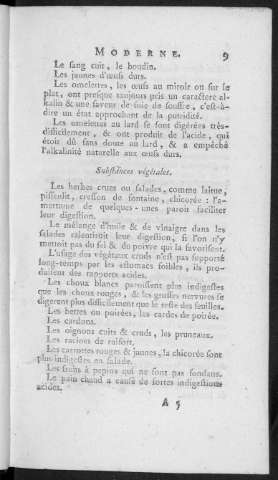 MODERNE. 9
Le sang cuit, le boudin.
Les jaunes d'œufs durs.
Les omelettes, les œufs au miroir ou sur le
plat, ont presque toujours pris un caractere al-
kalin & une saveur de foie de soufre, c'est-à-
dire un état approchant de la putridité.
Les omelettes au lard se sont digérées très-
difficilement, & ont produit de l'acide, qui
étoit dû sans doute au lard, & a empêché
l'alkalinité naturelle aux œufs durs.
Substances végétales.
Les herbes crues ou salades, comme laitue,
pissenlit, cresson de fontaine, chicorée : l'a-
mertume de quelques-unes paroît faciliter
leur digestion.
Le mélange d'huile & de vinaigre dans les
salades ralentiroit leur digestion, si l'on n'y
mettoit pas du sel & du poivre qui la favorisent.
L'usage des végétaux cruds n'est pas supporté
long-temps par les estomacs foibles, ils pro-
duisent des rapports acides.
Les choux blancs paroissent plus indigestes
que les choux rouges, & les grosses nervures se
digerent plus difficilement que le reste des feuilles.
Les bettes ou poirées, les cardes de poirée.
Les cardons.
Les oignons cuits & cruds, les pruneaux.
Les racines de raifort.
Les carottes rouges & jaunes, la chicorée sont
plus indigestes en salade.
Les fruits à pepins qui ne sont pas fondans.
Le pain chaud a causé de fortes indigestions
acides.
A 5